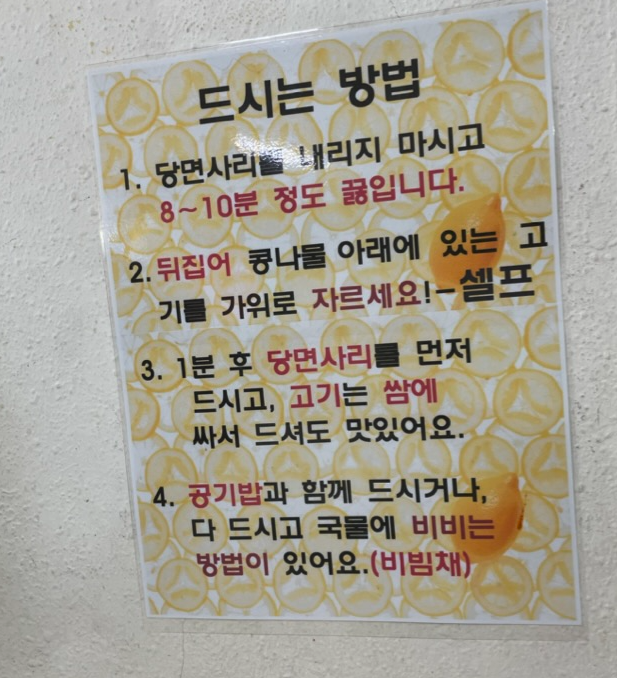 드시는 방법
1. 당면사리를 내리지 마시고
8~10분 정도 끓입니다.
2. 뒤집어 콩나물 아래에 있는 고
기를 가위로 자르세요!-셀프
3. 1분 후 당면사리를 먼저
드시고, 고기는 쌈에
싸서 드셔도 맛있어요.
4. 공기밥과 함께 드시거나,
다 드시고 국물에 비비는
방법이 있어요.(비빔채)